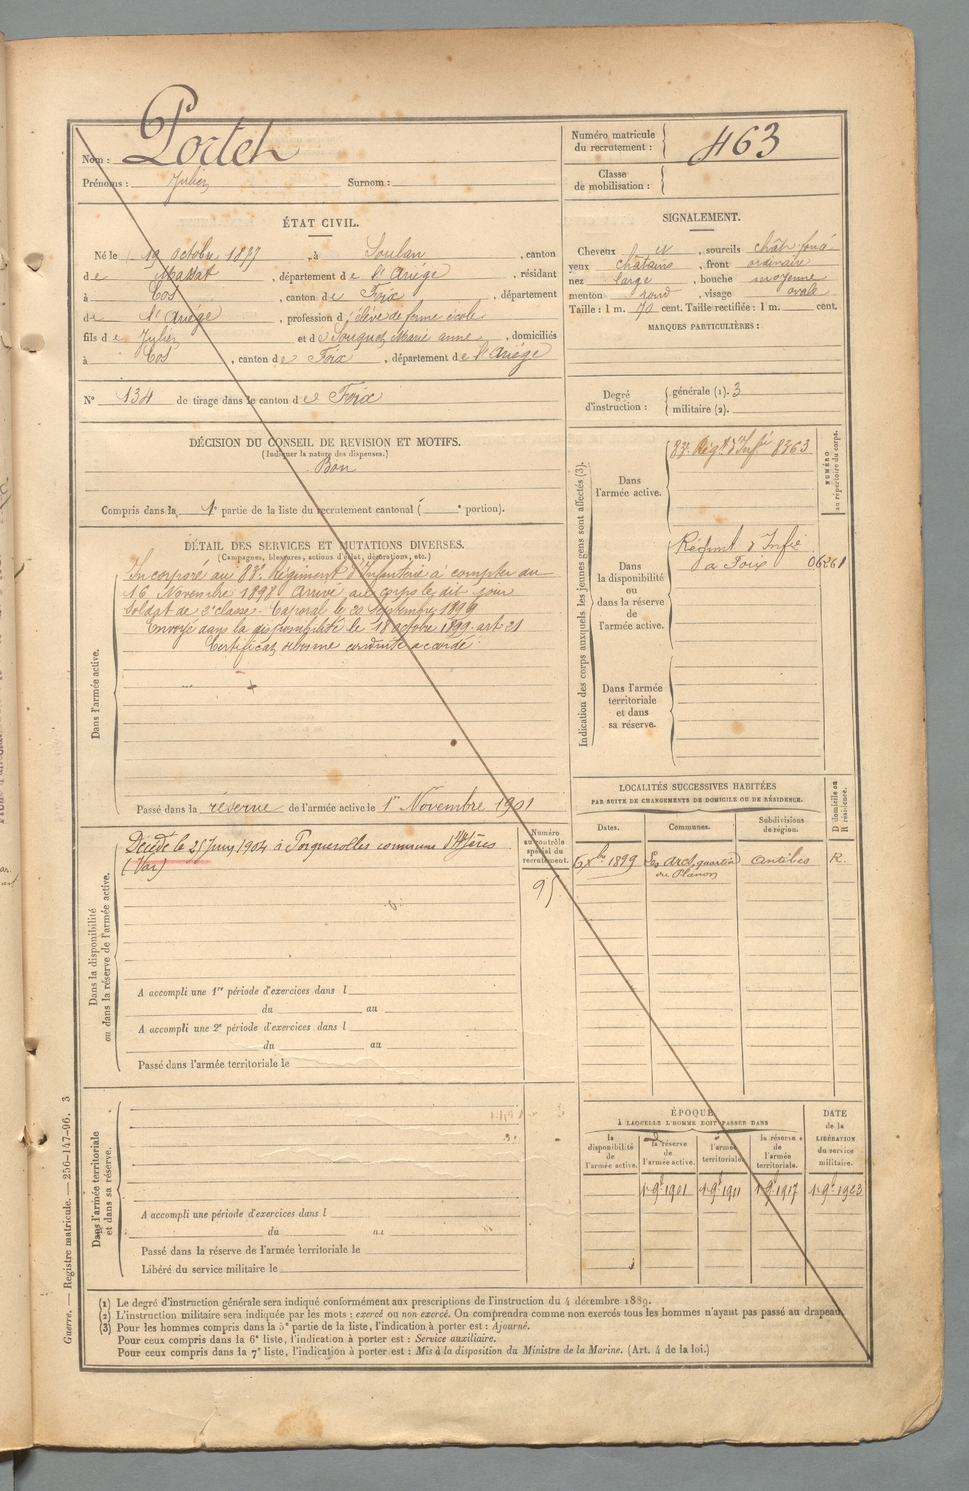 Nom : Portet
Prénoms : Julien Surnom :
Numéro matricule du recrutement : 463
Classe de mobilisation :
ÉTAT CIVIL.
Né le 19 octobre 1877, à Soulan, canton
de Massat, département de l'Ariège, résidant
à Cos, canton de Foix, département
de l'Ariège, profession d'élève de ferme école
fils de Julien et de Souquet Marie anne, domiciliés
à Cos, canton de Foix, département de l'Ariège
N° 134 de tirage dans le canton de Foix
SIGNALEMENT.
Cheveux et, sourcils chât. foncé
yeux châtains, front ordinaire
nez large, bouche moyenne
menton rond, visage ovale
Taille : 1 m. 70 cent. Taille rectifiée : 1 m. cent.
MARQUES PARTICULIÈRES :
Degré d'instruction : générale (1). 3
militaire (2).
DÉCISION DU CONSEIL DE REVISION ET MOTIFS.
(Indiquer la nature des dispenses.)
Bon
Compris dans la 1e partie de la liste du recrutement cantonal ( e portion).
DÉTAIL DES SERVICES ET MUTATIONS DIVERSES.
(Campagnes, blessures, actions d'éclat, décorations, etc.)
Dans l'armée active.
Incorporé au 83e Régiment d'Infanterie à compter du
16 Novembre 1898 Arrivé au corps le dit jour
Soldat de 2e classe. Caporal le 20 Septembre 1899
Envoyé dans la disponibilité le 18 octobre 1899 art 21
Certificat de bonne conduite accordé
Passé dans la réserve de l'armée active le 1er Novembre 1901
Indication des corps auxquels les jeunes gens sont affectés (3).
NUMÉRO au répertoire du corps.
Dans l'armée active.
83e Régt d'Infie 8363
Dans la disponibilité ou dans la réserve de l'armée active.
Régiment d'Infie
à Foix 06261
Dans l'armée territoriale et dans sa réserve.
Dans la disponibilité ou dans la réserve de l'armée active.
Décédé le 25 Juin 1904 à Porquerolles commune d'Hyères
(Var)
Numéro au contrôle spécial du recrutement.
95
A accompli une 1re période d'exercices dans l
du au
A accompli une 2e période d'exercices dans l
du au
Passé dans l'armée territoriale le
LOCALITÉS SUCCESSIVES HABITÉES
PAR SUITE DE CHANGEMENTS DE DOMICILE OU DE RÉSIDENCE.
D domicile ou R résidence.
Dates. Communes. Subdivisions de région.
6 Xbre 1899 Les Arcs, quartier Antibes R.
du Planon
Dans l'armée territoriale et dans sa réserve.
A accompli une période d'exercices dans l
du au
Passé dans la réserve de l'armée territoriale le
Libéré du service militaire le
ÉPOQUE
À LAQUELLE L'HOMME DOIT PASSER DANS
la disponibilité de l'armée active. la réserve de l'armée active. l'armée territoriale. la réserve de l'armée territoriale. DATE de la LIBÉRATION du service militaire.
1 9bre 1901 1 9bre 1911 1 9bre 1917 1 9bre 1923
(1) Le degré d'instruction générale sera indiqué conformément aux prescriptions de l'instruction du 4 décembre 1889.
(2) L'instruction militaire sera indiquée par les mots : exercé ou non exercé. On comprendra comme non exercés tous les hommes n'ayant pas passé au drapeau.
(3) Pour les hommes compris dans la 5e partie de la liste, l'indication à porter est : Ajourné.
Pour ceux compris dans la 6e liste, l'indication à porter est : Service auxiliaire.
Pour ceux compris dans la 7e liste, l'indication à porter est : Mis à la disposition du Ministre de la Marine. (Art. 4 de la loi.)
Guerre. — Registre matricule. — 256-147-96. 3